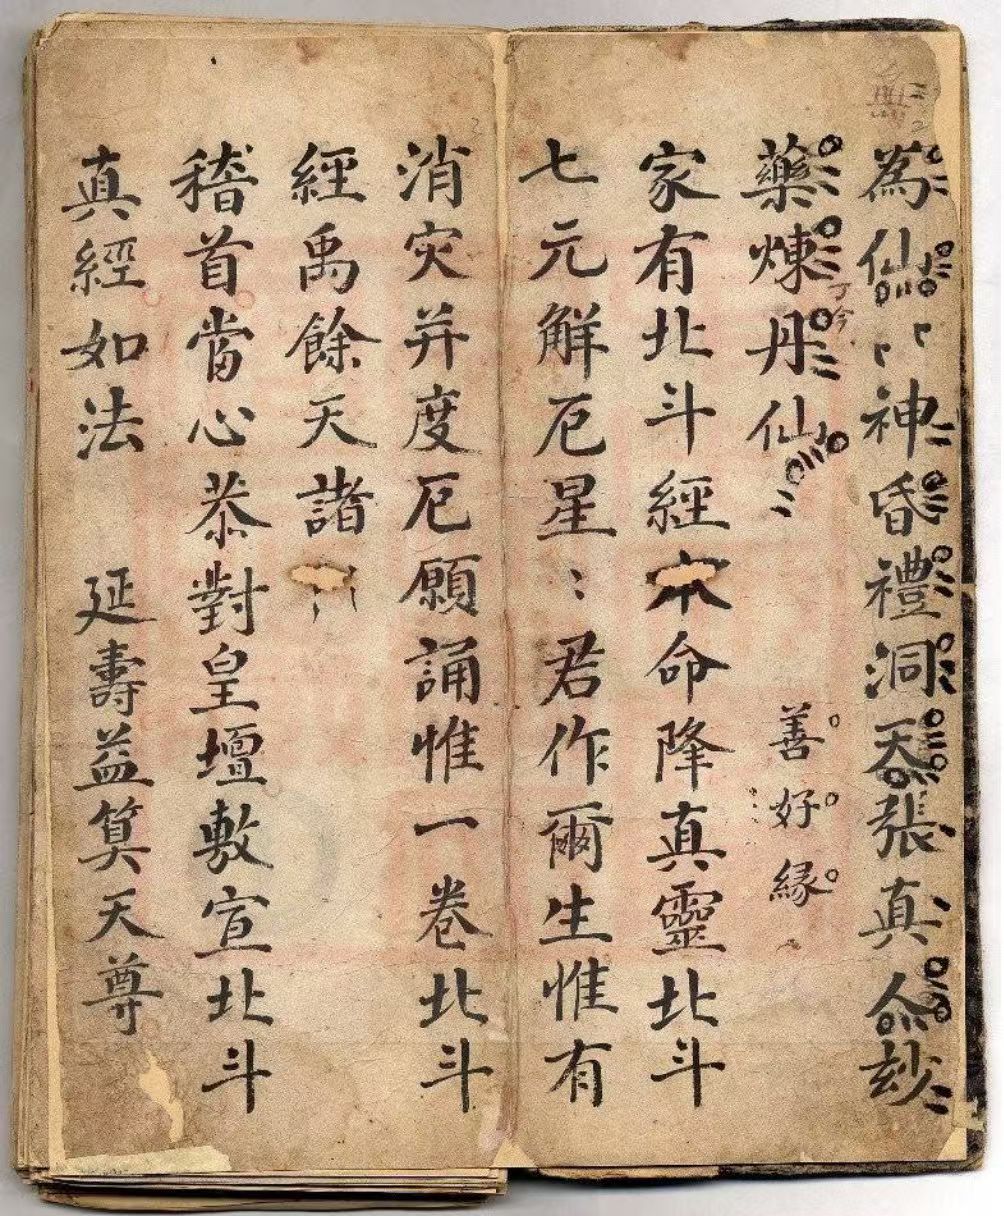 為仙神昏禮洞天張真人妙
藥煉丹仙
善好緣
家有北斗經本命降真靈北斗
七元解厄星：君作爾生惟有
消灾并度厄願誦惟一卷北斗
經禹餘天諸
稽首當心恭對皇壇敷宣北斗
真經如法 延壽益算天尊